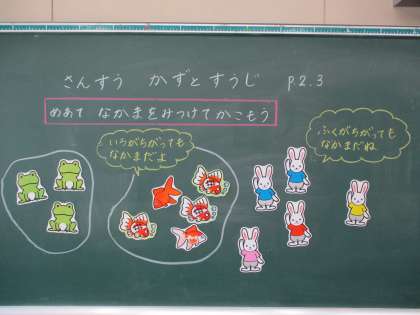 さんすう かずとすうじ p2.3
めあて なかまをみつけてかこもう
いろがちがっても
なかまだよ
ふくがちがっても
なかまだね